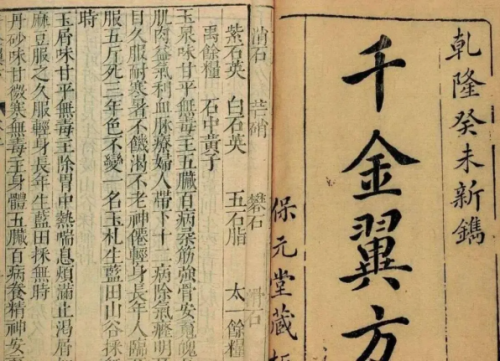 乾隆癸未新鐫
千金翼方
保元堂藏
消石 芒硝 礬石 滑石
紫石英 白石英 五石脂 太一餘糧
禹餘糧 石中黃子
玉泉味甘平無毒主五臟百病柔筋強骨安魂魄
肌肉益氣利血脈療婦人帶下十二病除氣癃明
目久服耐寒暑不饑渴不老神僊輕身長年人臨
服五斤死三年色不變一名玉札生藍田山谷採
時
玉屑味甘平無毒主除胃中熱喘息煩滿止渴屑
麻豆服之久服輕身長年生藍田採無時
丹砂味甘微寒無毒主身體五臟百病養精神安